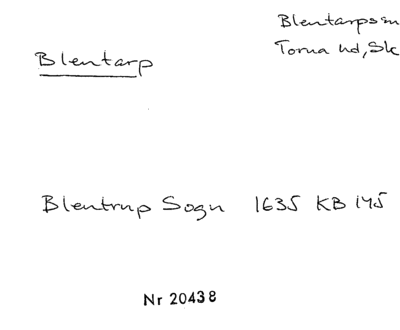 Blentarpssn
Blentarp
Torna hd, Sk
Blentrup Sogn 1635 KB 145
Nr 20438